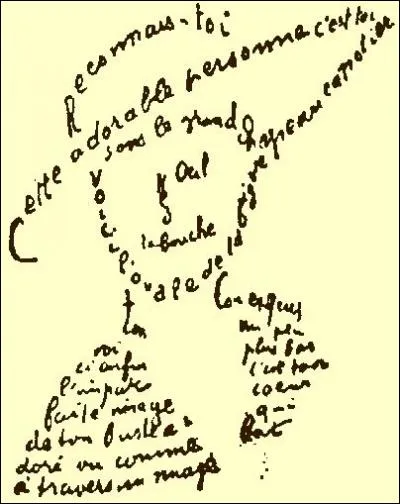 Reconnais-toi
Cette adorable personne c'est toi
sous le grand chapeau canotier
Œil
Nez
la bouche
Voici l'ovale de ta figure
ton
cou exquis
voici enfin
l'impar
faite image
de ton buste a
doré vu comme
à travers un nuage
un peu
plus bas
c'est ton
coeur
qui
bat